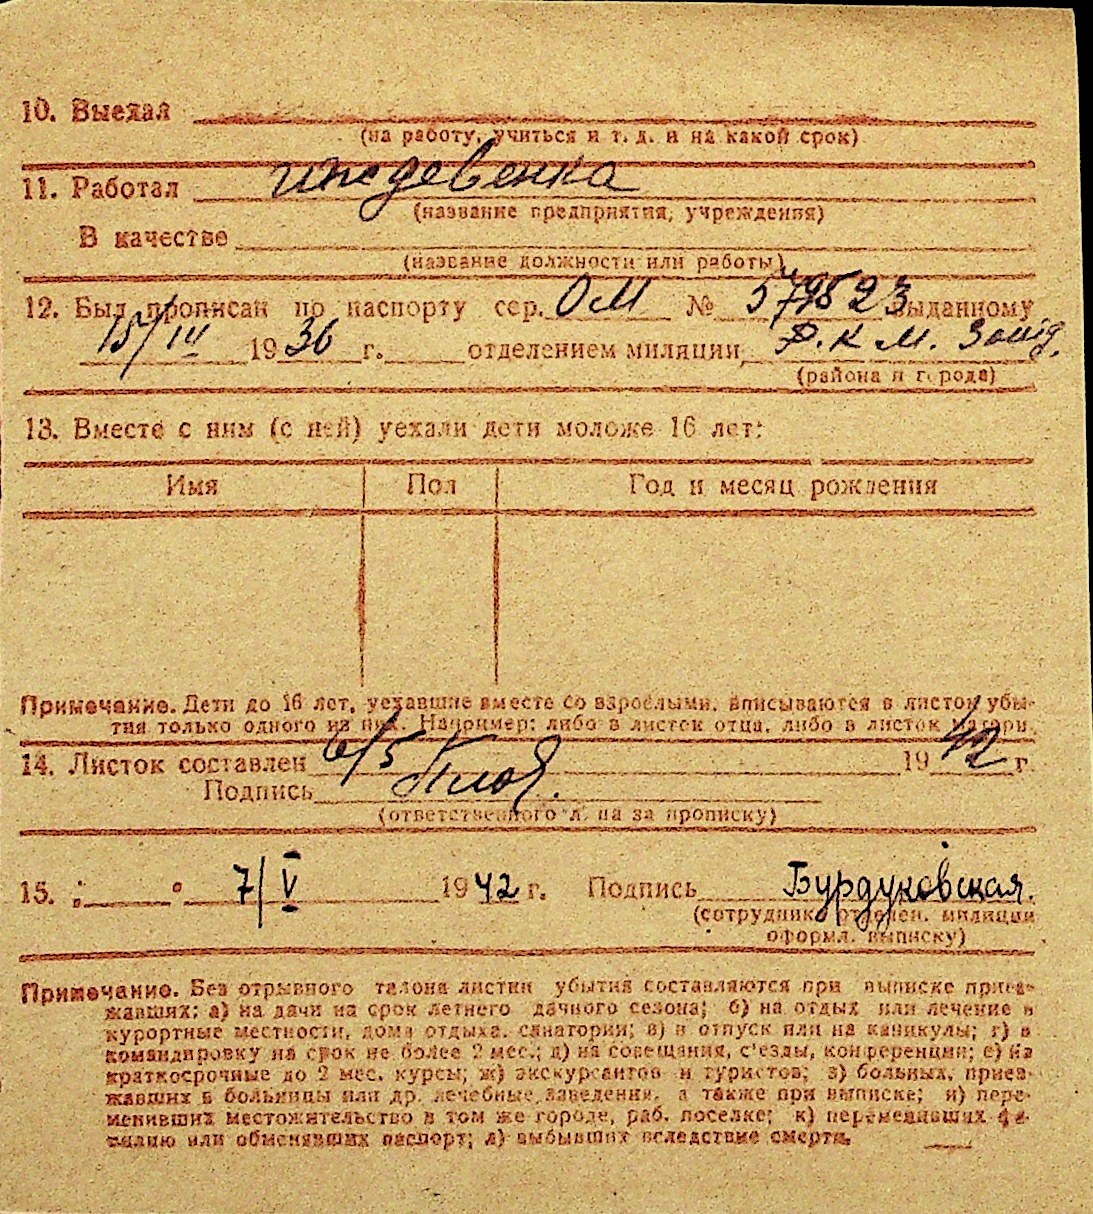 10. Выехал
(на работу, учиться и т. д. и на какой срок)
11. Работал иждевенка
(название предприятия, учреждения)
В качестве
(название должности или работы)
12. Был прописан по паспорту сер. ОМ № 579523 выданному
15/III 1936 г. отделением милиции, Р.К.М.
(района и города)
13. Вместе с ним (с ней) уехали дети моложе 16 лет:
Имя Пол Год и месяц рождения
Примечание. Дети до 16 лет, уехавшие вместе со взрослыми, вписываются в листок убы-
тия только одного из них. Например: либо в листок отца, либо в листок матери.
14. Листок составлен 6/5 1942 г.
Подпись
(ответственного л. на за прописку)
15. 7/V 1942 г. Подпись Бурдуковская.
(сотрудника отделен. милиции
оформл. выписку)
Примечание. Без отрывного талона листки убытия составляются при выписке приез-
жавших: а) на дачи на срок летнего дачного сезона; б) на отдых или лечение в
курортные местности, дома отдыха, санатории; в) в отпуск или на каникулы; г) в
командировку на срок не более 2 мес.; д) на совещания, с'езды, конференции; е) на
краткосрочные до 2 мес. курсы; ж) экскурсантов и туристов; з) больных, приез-
жавших в больницы или др. лечебные заведения, а также при выписке; и) пере-
менивших местожительство в том же городе, раб. поселке; к) переменивших фа-
милию или обменявших паспорт; л) выбывших вследствие смерти.